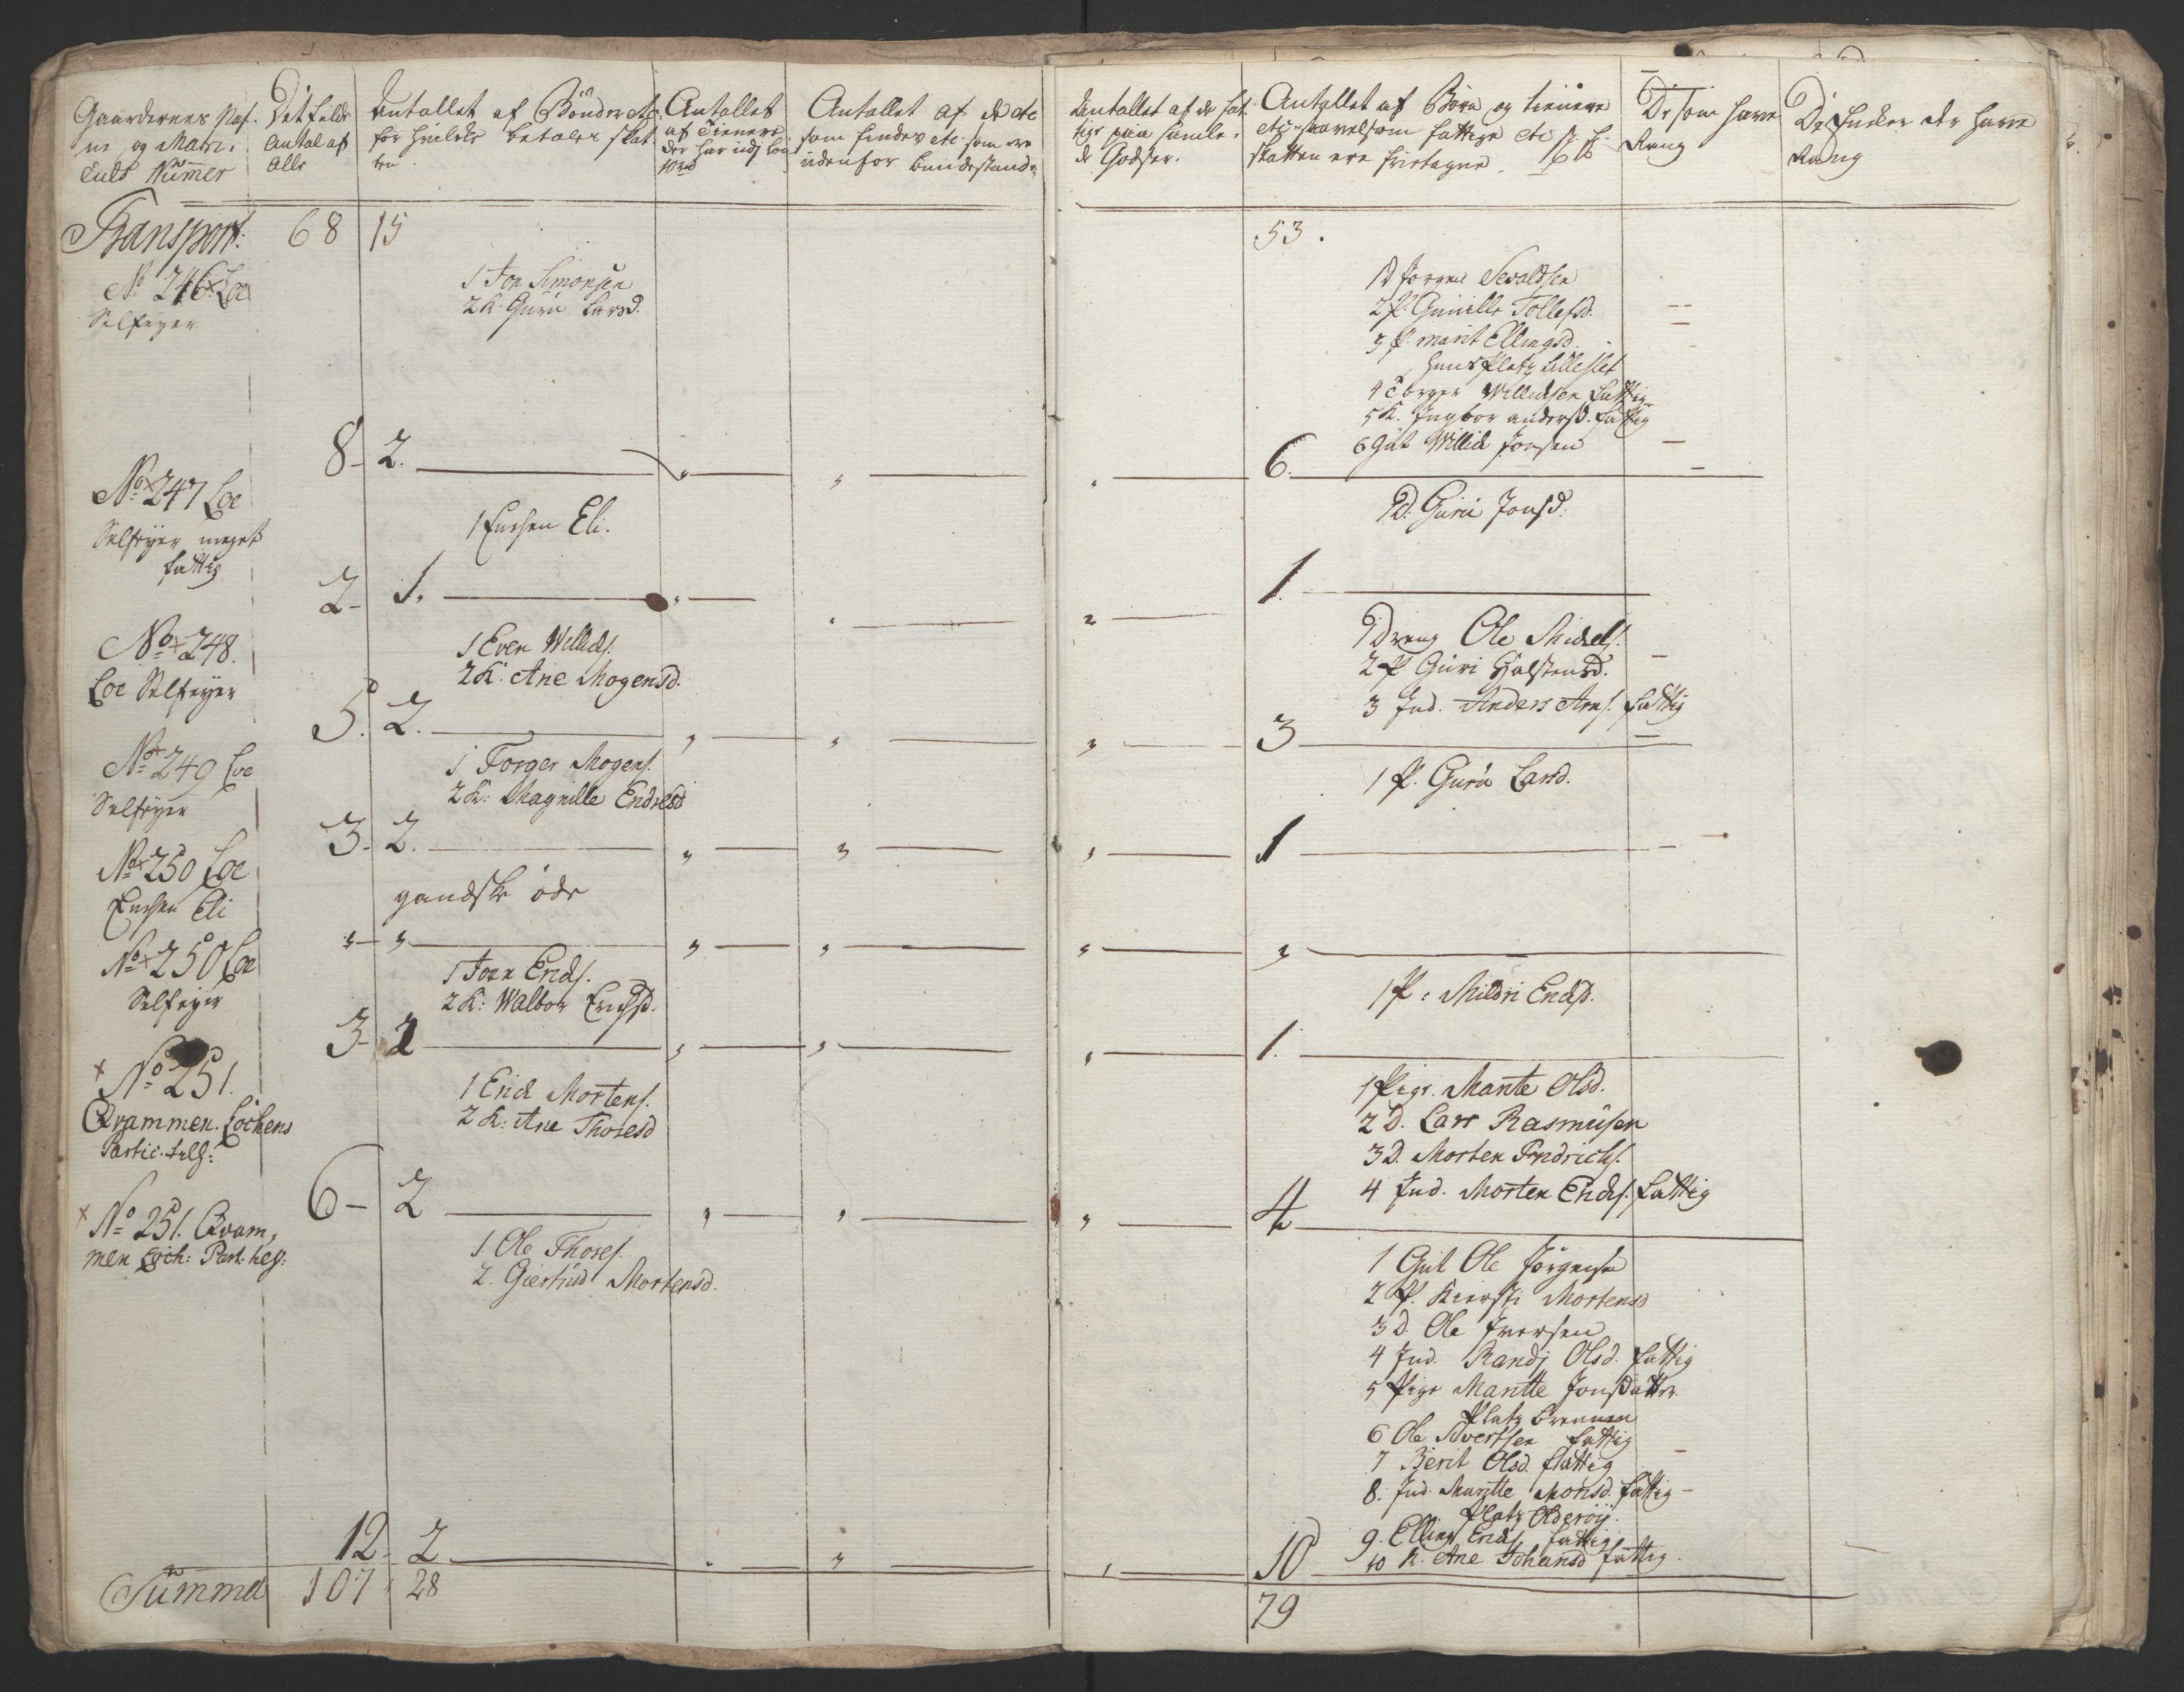 Gaardernes Naf-
ne og Matri-
culs Numer
Det fulde
Antal af
Alle
Antallet af Bönder etc:
for hvilke betales skat-
ten
Antallet
af Tienere
der har
jord
Antallet af de etc
som findes etc som ere
udenfor bondestanden
Antallet af de fat-
tige paa samle-
de Godser.
Antallet af Börn og tienere
etc saavelsom fattige etc
skatten ere fritagne
De som have
Rang
De Enker der have
Rang
Transport: 68 15 53.
No 246 Loe
Selfeyer
1 Jon Simonsen
2 K. Guru Larsd.
1 D Jorgen Sevaldsen
2 P. Gunille Tollefsd.
3 P. marit Ellingsd.
huus Platz Lilleslet
4 Torger Willucksen fattig
5 K. Ingbor andersd. fattig
6 Gut Willick Jonsen
8 - 2. " " " 6.
No 247 Loe
Selfeyer meget
fattig
1 Enchen Eli.
1 D: Guru Jonsd:
2 - 1. " " " 1.
No 248.
Loe Selfeyer
1 Even Willicks.
2 K. Ane Mogensd.
1 Dreng Ole Michels.
2 P Guri Halstensd.
3 Ind. Anders Arns. fattig
5. 2. " " " 3
No 249 Loe
Selfeyer
1 Torger Mogens.
2 K: Magnille Endresd
1 P. Guru Larsd.
3 - 2. " " " 1
No 250 Loe
Enchen Eli
gandske öde
" - " " " " "
No 250 Loe
Selfeyer
1 Joen Ericks.
2 K: Walbor Erichsd.
1 P: Mildri Ericksd.
3 - 2 " " " 1.
No 251.
Qvammen. Lochens
Partic. Selg:
1 Erick Mortens.
2 K: Ane Thoresd
1 Pige. Marite Olsd.
2 D. Lars Rasmusen
3 D. Morten Fridrichs.
4 Ind. Morten Ericks. fattig
6 - 2 " " " 4
No 251. Qvam-
men Loch: Part. Selg:
1 Ole Thores.
2. Giertrud Mortensd.
1 Gut Ole Jörgensen
2 P. Kiersti Mortensd
3 D. Ole Iversen
4 Ind. Randi Olsd. fattig
5 Pige Maritte Jonsdatter
Platz Brennen
6 Ole Sivertsen fattig
7 Berit Olsd. fattig
8. Ind. Maritte Monsd. fattig
Platz Olderöy.
9. Elling Ericks. fattig
10 K. Ane Johansd fattig.
12. 2 " " " 10
Summa 107 28 79